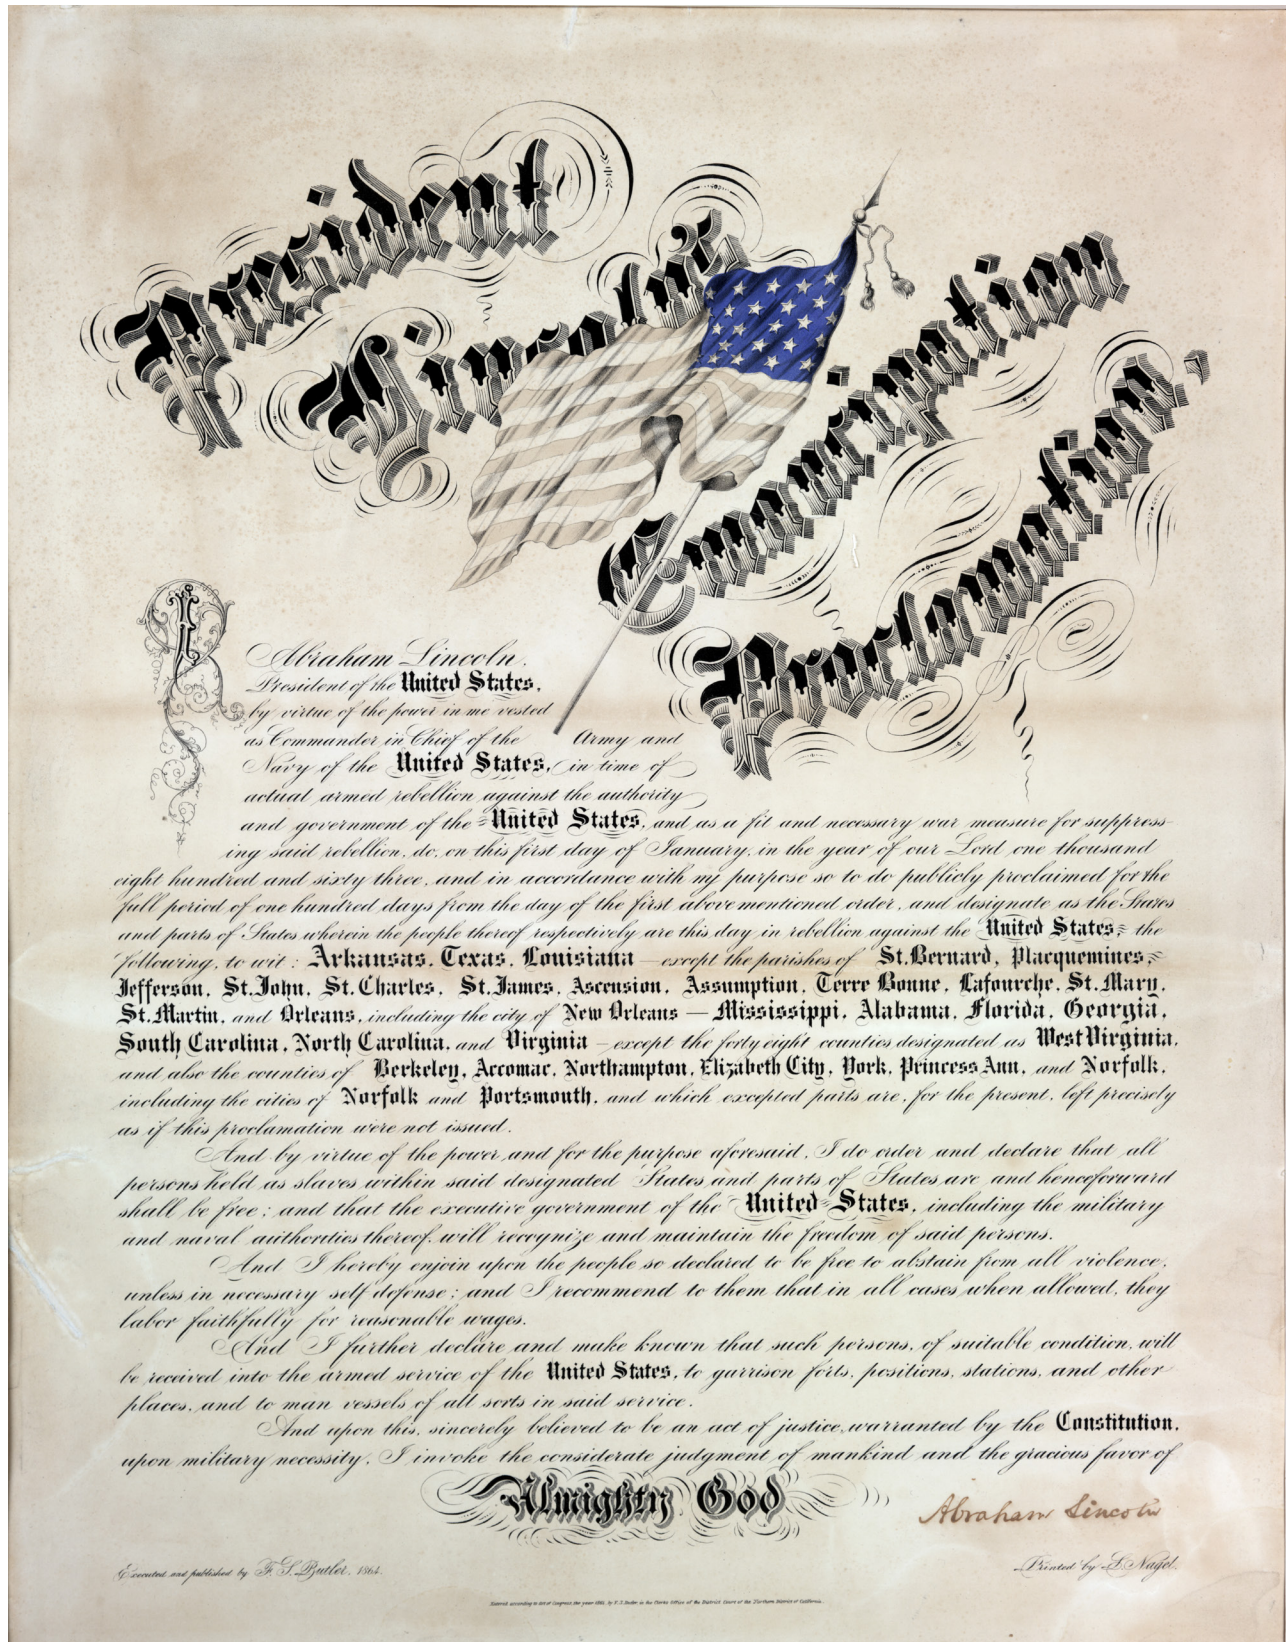 President
Lincoln's
Emancipation
Proclamation.
I
Abraham Lincoln.
President of the United States,
by virtue of the power in me vested
as Commander in Chief of the Army and
Navy of the United States, in time of
actual armed rebellion against the authority
and government of the United States, and as a fit and necessary war measure for suppress-
ing said rebellion, do, on this first day of January, in the year of our Lord one thousand
eight hundred and sixty three, and in accordance with my purpose so to do publicly proclaimed for the
full period of one hundred days from the day of the first above mentioned order, and designate as the States
and parts of States wherein the people thereof respectively are this day in rebellion against the United States; the
following, to wit: Arkansas, Texas, Louisiana — except the parishes of St. Bernard, Placquemines,
Jefferson, St. John, St. Charles, St. James, Ascension, Assumption, Terre Bonne, Lafourche, St. Mary,
St. Martin, and Orleans, including the city of New Orleans — Mississippi, Alabama, Florida, Georgia,
South Carolina, North Carolina, and Virginia — except the forty eight counties designated as West Virginia,
and also the counties of Berkeley, Accomac, Northampton, Elizabeth City, York, Princess Ann, and Norfolk,
including the cities of Norfolk and Portsmouth, and which excepted parts are, for the present, left precisely
as if this proclamation were not issued.
And by virtue of the power and for the purpose aforesaid, I do order and declare that all
persons held as slaves within said designated States and parts of States are and henceforward
shall be free; and that the executive government of the United States, including the military
and naval authorities thereof, will recognize and maintain the freedom of said persons.
And I hereby enjoin upon the people so declared to be free to abstain from all violence,
unless in necessary self defense; and I recommend to them that in all cases when allowed, they
labor faithfully for reasonable wages.
And I further declare and make known that such persons, of suitable condition, will
be received into the armed service of the United States, to garrison forts, positions, stations, and other
places, and to man vessels of all sorts in said service.
And upon this, sincerely believed to be an act of justice, warranted by the Constitution,
upon military necessity, I invoke the considerate judgment of mankind and the gracious favor of
Almighty God
Abraham Lincoln
Executed and published by F. S. Butler, 1864.
Printed by L. Nagel.
Entered according to Act of Congress the year 1864, by F. S. Butler, in the Clerks Office of the District Court of the Northern District of California.